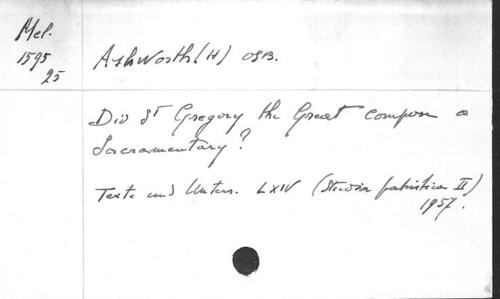 Mel.
1595
25
Ashworth (H) OSB.
Did St Gregory the Great compose a
Sacramentary?
Texte und Unters. LXIV (Studia patristica II)
1957.